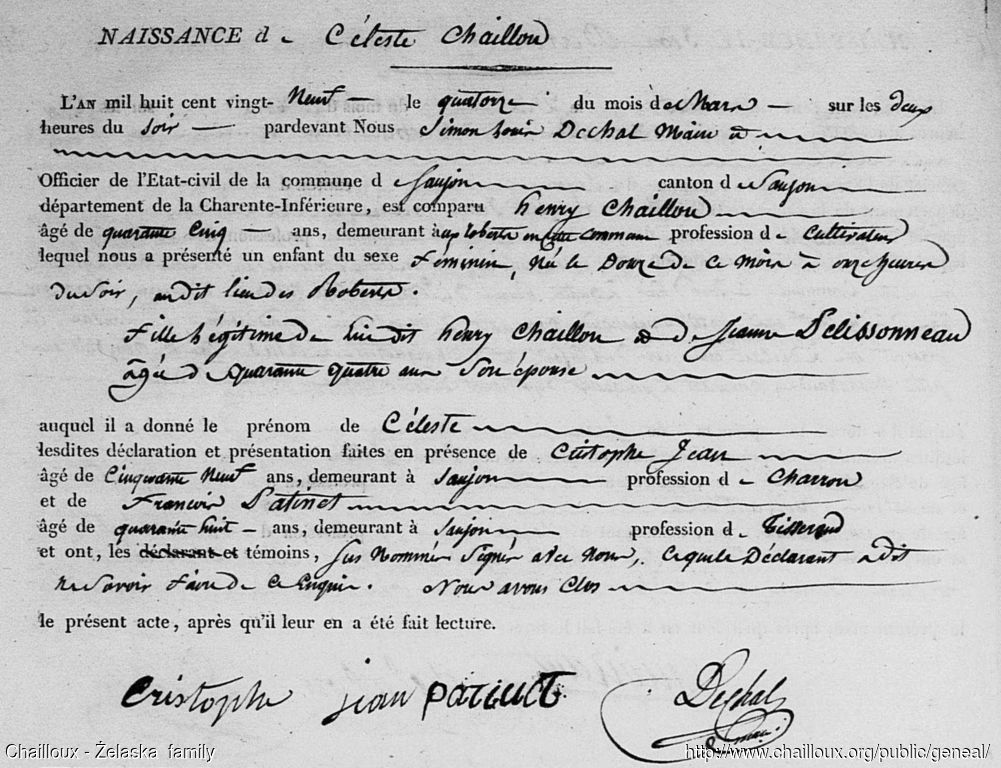 NAISSANCE de Céleste Chaillou
L'AN mil huit cent vingt- Neuf le quatorze du mois de Mars sur les deux
heures du soir pardevant Nous Simon Louis Dechal Maire &
Officier de l'Etat-civil de la commune de Saujon canton de Saujon
département de la Charente-Inférieure, est comparu henry Chaillou
âgé de quarante Cinq ans, demeurant à aux Roberts en cette Commune profession de Cultivateur
lequel nous a présenté un enfant du sexe féminin, Né le Douze de ce mois à onze heures
du soir, audit lieu des Roberts.
fille légitime de lui dit henry Chaillou & de Jeanne Pelissonneau
âgée de quarante quatre ans Son épouse
auquel il a donné le prénom de Céleste
lesdites déclaration et présentation faites en présence de Cristophe Jean
âgé de Cinquante Neuf ans, demeurant à Saujon profession de Charron
et de François Patinet
âgé de quarante huit ans, demeurant à Saujon profession de Tisserand
et ont, les déclarant et témoins, Sus Nommés Signé avec Nous, Ce que le Déclarant a dit
ne Savoir faire de Ce Enquis. Nous avons Clos
le présent acte, après qu'il leur en a été fait lecture.
Cristophe jean PATINET Dechal
Maire
Chailloux - Želaska family
http://www.chailloux.org/public/geneal/